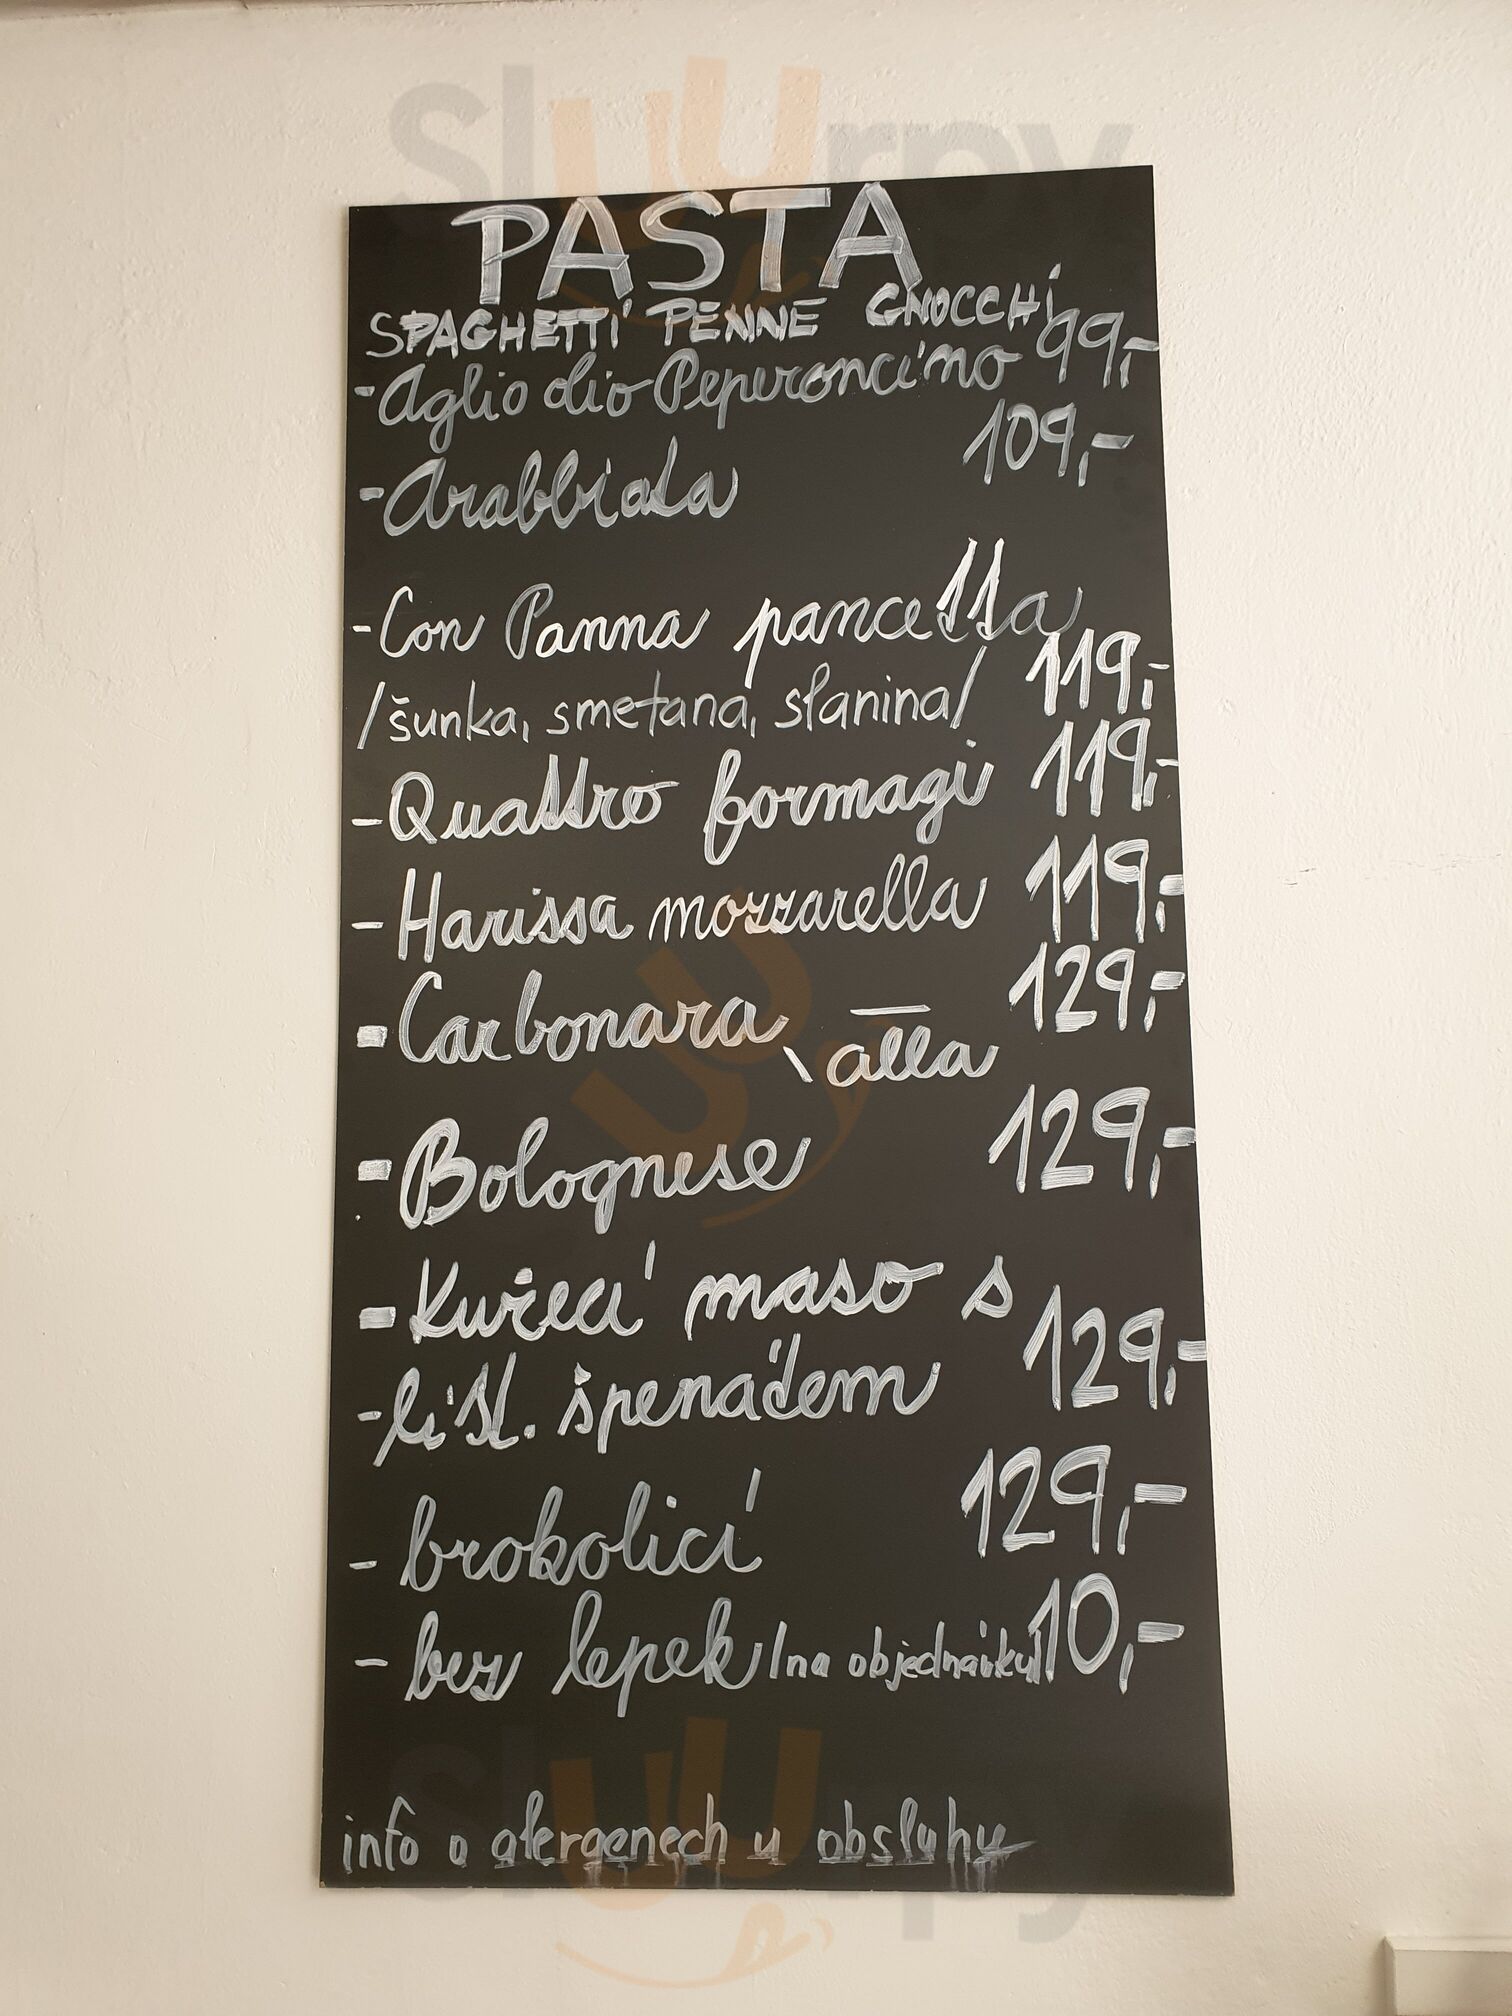 sluurpy
PASTA
SPAGHETTI PENNE GNOCCHI
- Aglio olio Peperoncino 99,-
- Arabbiata 109,-
- Con Panna pancetta
/šunka, smetana, slanina/ 119,-
- Quattro formagi 119,-
- Harissa mozzarella 119,-
- Carbonara 129,-
\ alla
- Bolognese 129,-
- Kuřecí maso s
- list. špenátem 129,-
- brokolicí 129,-
- bez lepek /na objednávku/ 10,-
info o alergenech u obsluhy
sluurpy